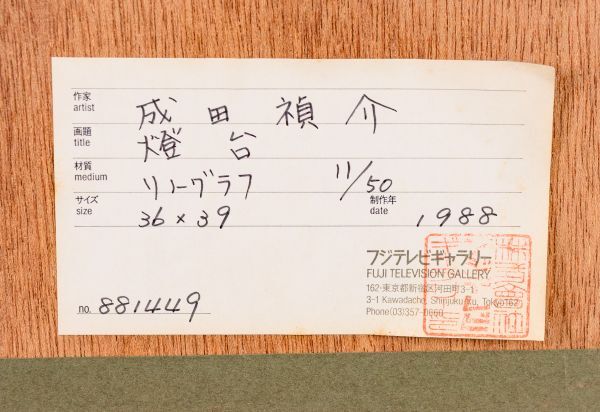 作家 成田禎介
artist
画題 燈台
title
材質 リノーグラフ 11/50
medium
サイズ 36×39 制作年 1988
size date
フジテレビギャラリー
FUJI TELEVISION GALLERY
162・東京都新宿区河田町3-1
3-1 Kawadacho, Shinjuku-ku, Tokyo 162
Phone (03)357-0660
no. 881449